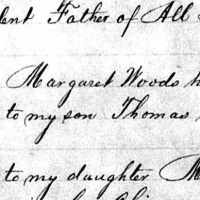 Father of All
Margaret Woods
to my son Thomas
to my daughter